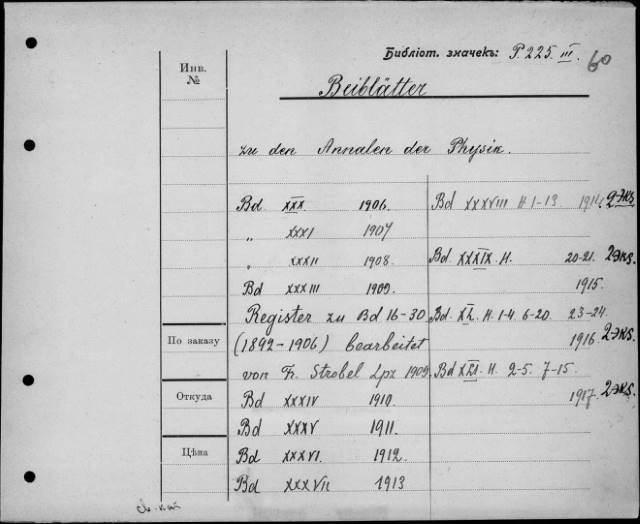 Библіот. значекъ: P. 225. III. 60
Инв.
№
Beiblätter
zu den Annalen der Physik.
Bd. XXX 1906.
„ XXXI 1907
„ XXXII 1908.
Bd XXXIII 1909.
Register zu Bd 16-30
(1892-1906) bearbeitet
von Fr. Strobel Lpz 1909.
Bd XXXIV 1910.
Bd XXXV 1911.
Bd XXXVI. 1912.
Bd XXXVII 1913
Bd XXXVIII H 1-13. 1914. 2экз.
Bd. XXXIX. H. 20-21. 2экз.
1915.
Bd. XL. H. 1-4. 6-20. 23-24.
1916. 2экз.
Bd XLI. H. 2-5. 7-15.
1917. 2экз.
По заказу
Откуда
Цѣна